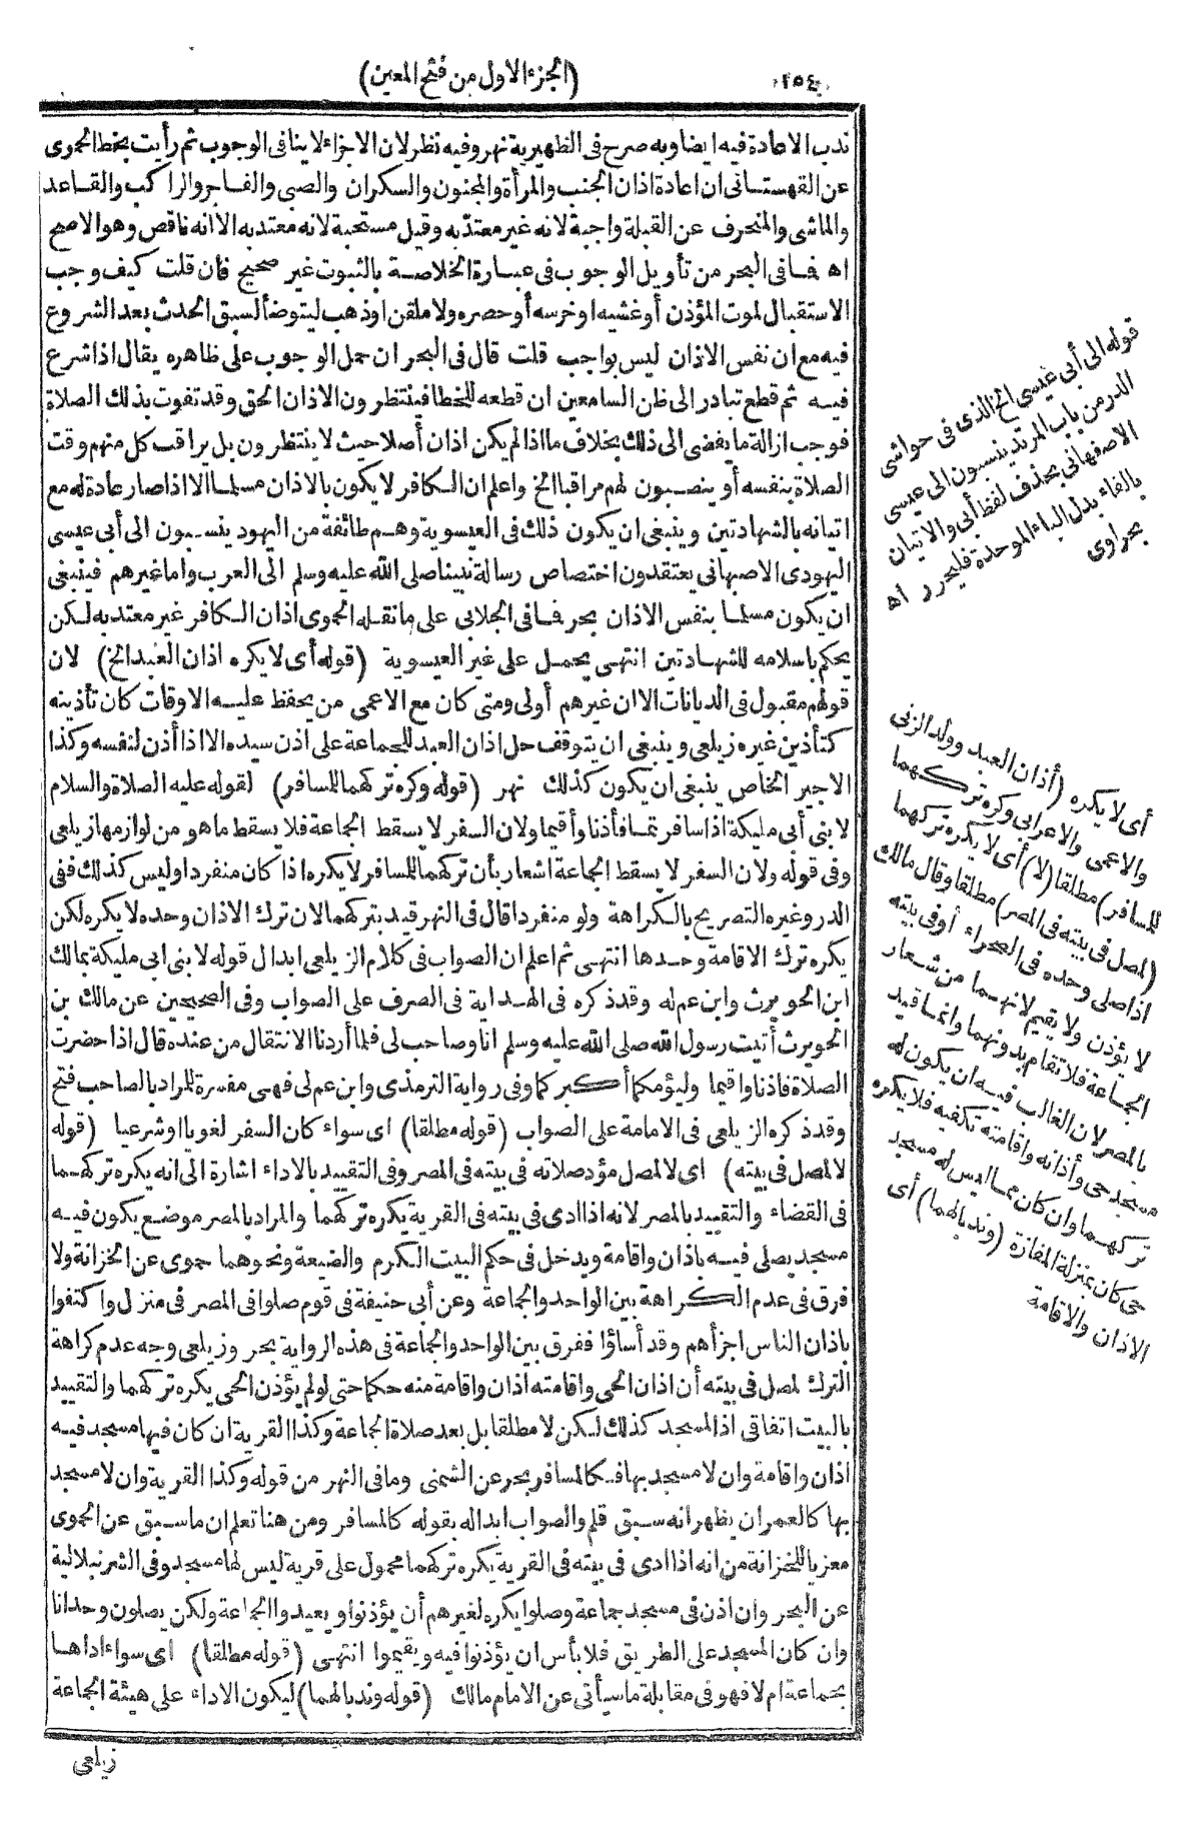 ١٥٤
(الجزء الاول من فتح المعين)
ندب الاعادة فيه ايضا وبه صرح في الظهيرية نهر وفيه نظر لان الاجزاء لا ينافى الوجوب ثم رأيت بخط الحموى
عن القهستانى ان اعادة اذان الجنب والمرأة والمجنون والسكران والصبى والفاجر والراكب والقاعد
والماشى والمنحرف عن القبلة واجبة لانه غير معتد به وقيل مستحبة لانه معتد به الا انه ناقص وهو الاصح
اه فما فى البحر من تأويل الوجوب فى عبارة الخلاصة بالثبوت غير صحيح فان قلت كيف وجب
الاستقبال لموت المؤذن أو غشيه او خرسه أو حصره ولا ملقن او ذهب ليتوضأ لسبق الحدث بعد الشروع
فيه مع ان نفس الاذان ليس بواجب قلت قال فى البحر ان حمل الوجوب على ظاهره يقال اذا شرع
فيه ثم قطع تبادر الى ظن السامعين ان قطعه للخطا فينتظرون الاذان الحق وقد تفوت بذلك الصلاة
فوجب ازالة ما يفضى الى ذلك بخلاف ما اذا لم يكن اذان أصلا حيث لا ينتظرون بل يراقب كل منهم وقت
الصلاة بنفسه أو ينصبون لهم مراقبا الخ واعلم ان الكافر لا يكون بالاذان مسلما الا اذا صار عادة له مع
اتيانه بالشهادتين وينبغى ان يكون ذلك فى العيسوية وهم طائفة من اليهود ينسبون الى أبى عيسى
اليهودى الاصبهانى يعتقدون اختصاص رسالة نبينا صلى الله عليه وسلم الى العرب واما غيرهم فينبغى
ان يكون مسلما بنفس الاذان بحر فما فى الجلابى على ما نقله الحموى اذان الكافر غير معتد به لكن
يحكم باسلامه للشهادتين انتهى يحمل على غير العيسوية (قوله أى لا يكره اذان العبد الخ) لان
قولهم مقبول فى الديانات الا ان غيرهم أولى ومتى كان مع الاعمى من يحفظ عليه الاوقات كان تأذينه
كتأذين غيره زيلعى وينبغى ان يتوقف حل اذان العبد للجماعة على اذن سيده الا اذا أذن لنفسه وكذا
الاجير الخاص ينبغى ان يكون كذلك نهر (قوله وكره تركهما للمسافر) لقوله عليه الصلاة والسلام
لابنى أبى مليكة اذا سافرتما فأذنا وأقيما ولان السفر لا يسقط الجماعة فلا يسقط ما هو من لوازمها زيلعى
وفى قوله ولان السفر لا يسقط الجماعة اشعار بأن تركهما للمسافر لا يكره اذا كان منفردا وليس كذلك ففى
الدر وغيره التصريح بالكراهة ولو منفردا قال فى النهر قيد بتركهما لان ترك الاذان وحده لا يكره لكن
يكره ترك الاقامة وحدها انتهى ثم اعلم ان الصواب فى كلام الزيلعى ابدال قوله لابنى ابى مليكة بمالك
ابن الحويرث وابن عم له وقد ذكره فى الهداية فى الصرف على الصواب وفى الصحيحين عن مالك بن
الحويرث أتيت رسول الله صلى الله عليه وسلم انا وصاحب لى فلما أردنا الانتقال من عنده قال اذا حضرت
الصلاة فاذنا واقيما وليؤمكما أكبركما وفى رواية الترمذى وابن عم لى فهى مفسرة للمراد بالصاحب فتح
وقد ذكره الزيلعى فى الامامة على الصواب (قوله مطلقا) اى سواء كان السفر لغويا او شرعيا (قوله
لا لمصل فى بيته) اى لا لمصل مؤد صلاته فى بيته فى المصر وفى التقييد بالاداء اشارة الى انه يكره تركهما
فى القضاء والتقييد بالمصر لانه اذا ادى فى بيته فى القرية يكره تركهما والمراد بالمصر موضع يكون فيه
مسجد يصلى فيه باذان واقامة ويدخل فى حكم البيت الكرم والضيعة ونحوهما حموى عن الخزانة ولا
فرق فى عدم الكراهة بين الواحد والجماعة وعن أبى حنيفة فى قوم صلوا فى المصر فى منزل واكتفوا
باذان الناس اجزأهم وقد أساؤا ففرق بين الواحد والجماعة فى هذه الرواية بحر وزيلعى وجه عدم كراهة
الترك لمصل فى بيته أن اذان الحى واقامته اذان واقامة منه حكما حتى لو لم يؤذن الحى يكره تركهما والتقييد
بالبيت اتفاقى اذ المسجد كذلك لكن لا مطلقا بل بعد صلاة الجماعة وكذا القرية ان كان فيها مسجد فيه
اذان واقامة وان لا مسجد بها فكالمسافر بحر عن الشمنى وما فى النهر من قوله وكذا القرية وان لا مسجد
بها كالعمران يظهر انه سبق قلم والصواب ابداله بقوله كالمسافر ومن هنا تعلم ان ما سبق عن الحموى
معزيا للخزانة من انه اذا ادى فى بيته فى القرية يكره تركهما محمول على قرية ليس لها مسجد وفى الشرنبلالية
عن البحر وان اذن فى مسجد جماعة وصلوا يكره لغيرهم أن يؤذنوا ويعيدوا الجماعة ولكن يصلون وحدانا
وان كان المسجد على الطريق فلا بأس ان يؤذنوا فيه ويقيموا انتهى (قوله مطلقا) اى سواء اداها
بجماعة ام لا فهو فى مقابلة ما سيأتى عن الامام مالك (قوله وندبا لهما) ليكون الاداء على هيئة الجماعة
زيلعى
قوله الى أبى عيسى الخ الذى فى حواشى
الدر من باب المرتد ينسبون الى عيسى
الاصفهانى بحذف لفظ أبى والاتيان
بالفاء بدل الباء الموحدة فليحرر اه
بحراوى
أى لا يكره (أذان العبد وولد الزنى
والاعمى والاعرابى وكره تركهما
للمسافر) مطلقا (لا) أى لا يكره تركهما
(لمصل فى بيته فى المصر) مطلقا وقال مالك
اذا صلى وحده فى الصحراء أو فى بيته
لا يؤذن ولا يقيم لانهما من شعار
الجماعة فلا تقام بدونهما وانما قيد
بالمصر لان الغالب فيه ان يكون له
مسجد حى وأذانه واقامته تكفيه فلا يكره
تركهما وان كان مما ليس له مسجد
حى كان بمنزلة المفازة (وندبا لهما) أى
الاذان والاقامة